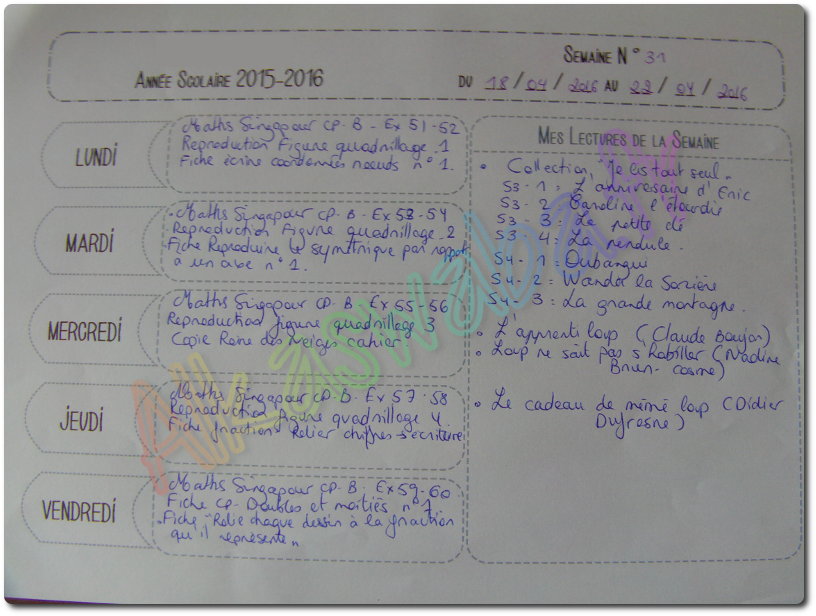 ANNÉE SCOLAIRE 2015-2016
SEMAINE N° 31
DU 18 / 04 / 2016 AU 22 / 04 / 2016
LUNDI
Maths Singapour CP. B - Ex 51-52
Reproduction Figure quadrillage 1
Fiche écrire coordonnées noeuds n° 1.
MARDI
Maths Singapour CP. B - Ex 53-54
Reproduction Figure quadrillage 2
Fiche Reproduire le symétrique par rapport
à un axe n° 1.
MERCREDI
Maths Singapour CP. B - Ex 55-56
Reproduction figure quadrillage 3
Copie Reine des neiges cahier
JEUDI
Maths Singapour CP. B - Ex 57-58
Reproduction figure quadrillage 4.
Fiche fractions Relier chiffres-écriture
VENDREDI
Maths Singapour CP. B - Ex 59-60
Fiche CP Doubles et moitiés n° 1
Fiche "Relie chaque dessin à la fraction
qu'il représente"
MES LECTURES DE LA SEMAINE
• Collection "Je lis tout seul"
S3 - 1 = L'anniversaire d'Eric
S3 - 2 Caroline l'étourdie
S3 - 3 = La petite clé
S3 - 4 = La pendule.
S4 - 1 = Oubangui
S4 - 2 = Wanda la Sorcière
S4 - 3 = La grande montagne.
• L'apprenti loup (Claude Boujon)
• Loup ne sait pas s'habiller (Nadine
Brun-Cosme)
• Le cadeau de mémé loup (Didier
Dufresne)